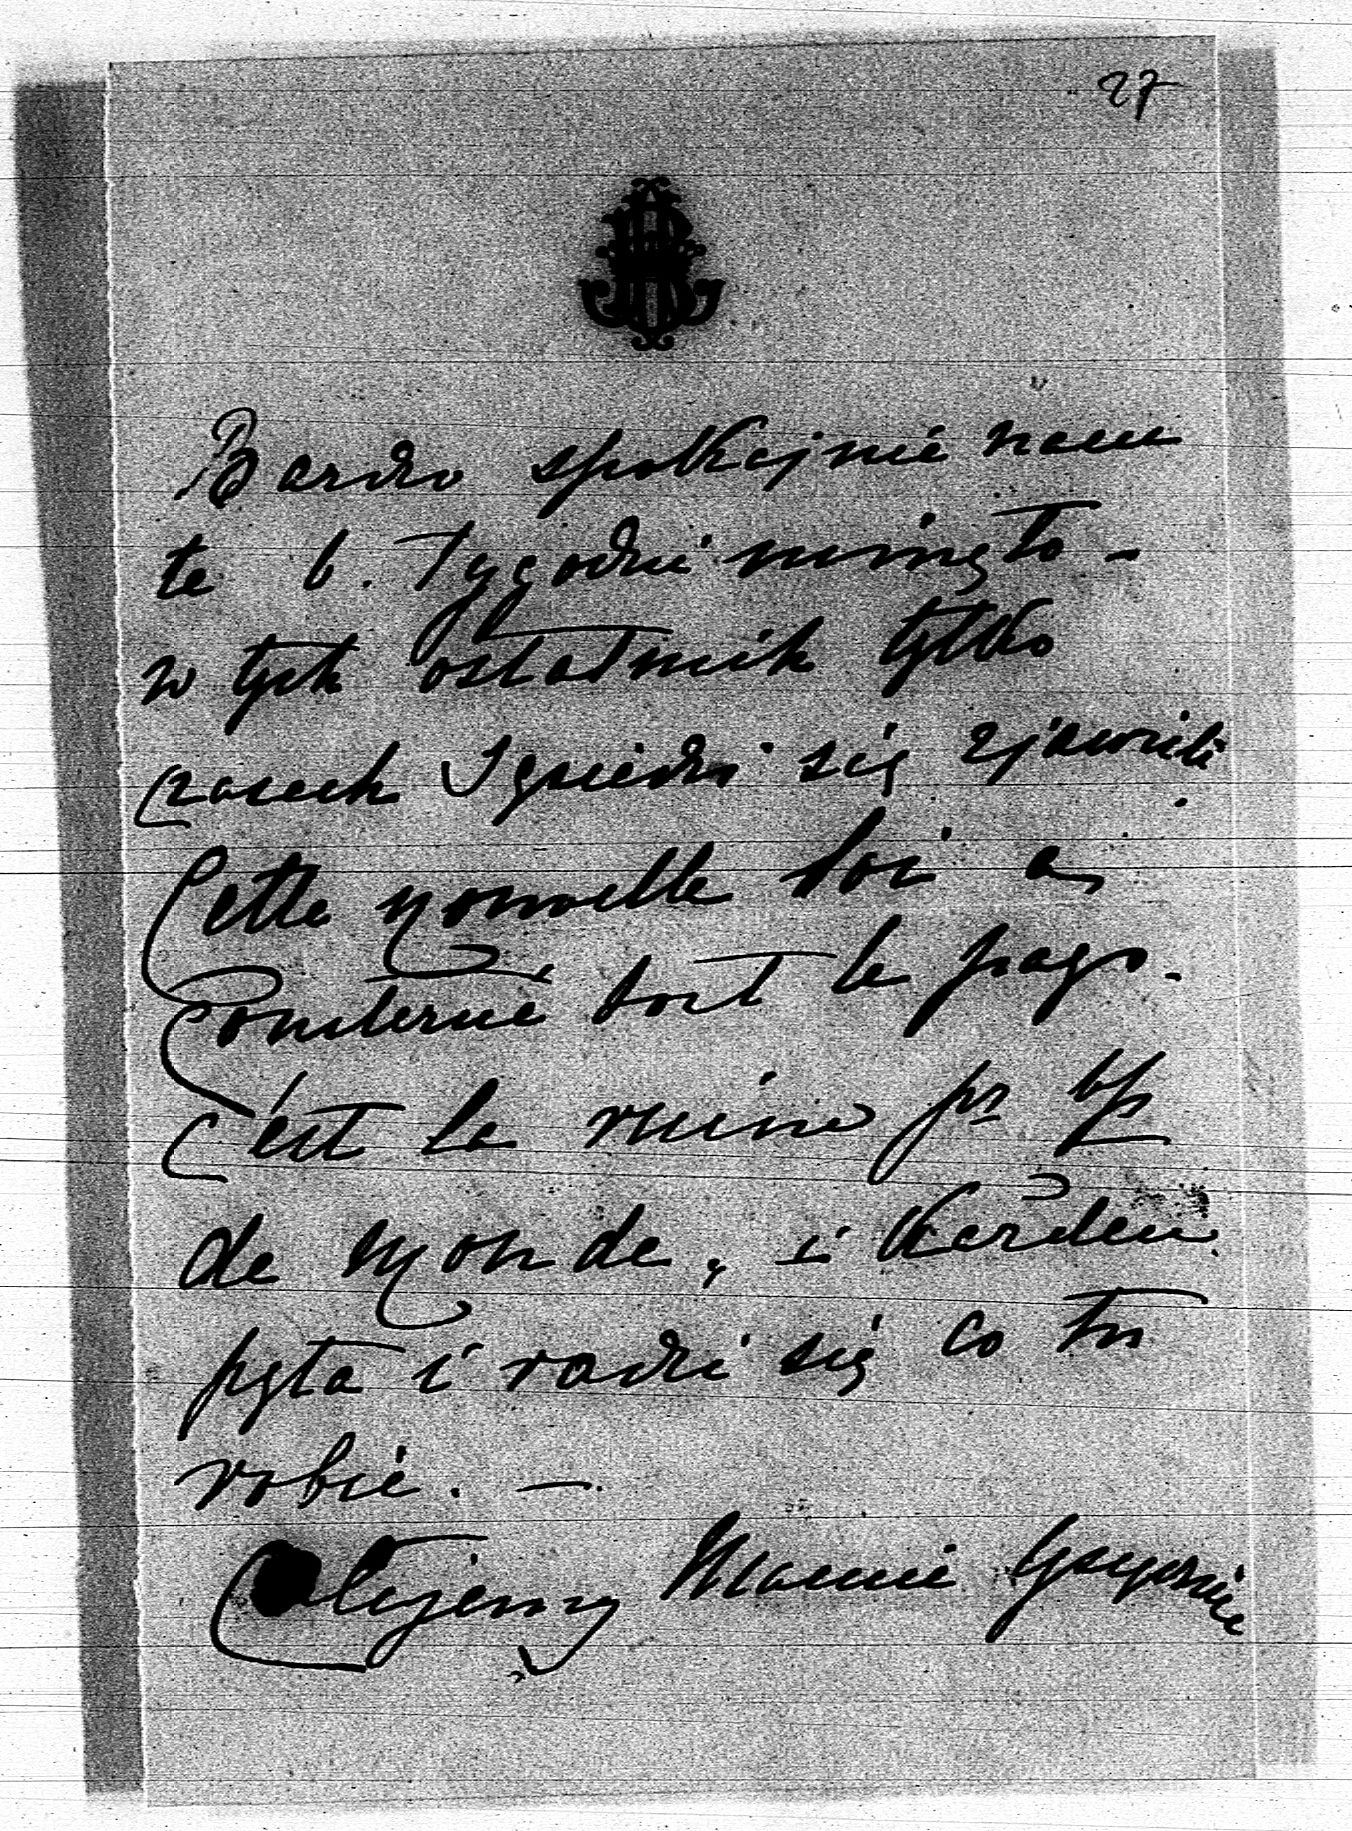 27
Bardzo spokojnie nam
te 6. Tygodni minęło –
w tych ostatnich tylko
czasach Sąsiedzi się zjawili
Cette nouvelle loi a
Consterné tout le pays.
c'est la ruine pr bp
de Monde, i każden
pyta i radzi się co tu
robić. –
Całujemy Mamie